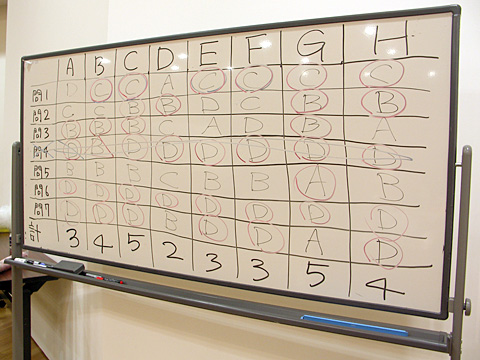 A B C D E F G H
問1 D C C A C C C C
問2 C C B B D C B B
問3 B B B C A D B A
問4 D B D D D D D D
問5 B B B C B B A B
問6 D D D D D D D D
問7 D D D B D D A D
計 3 4 5 2 3 3 5 4